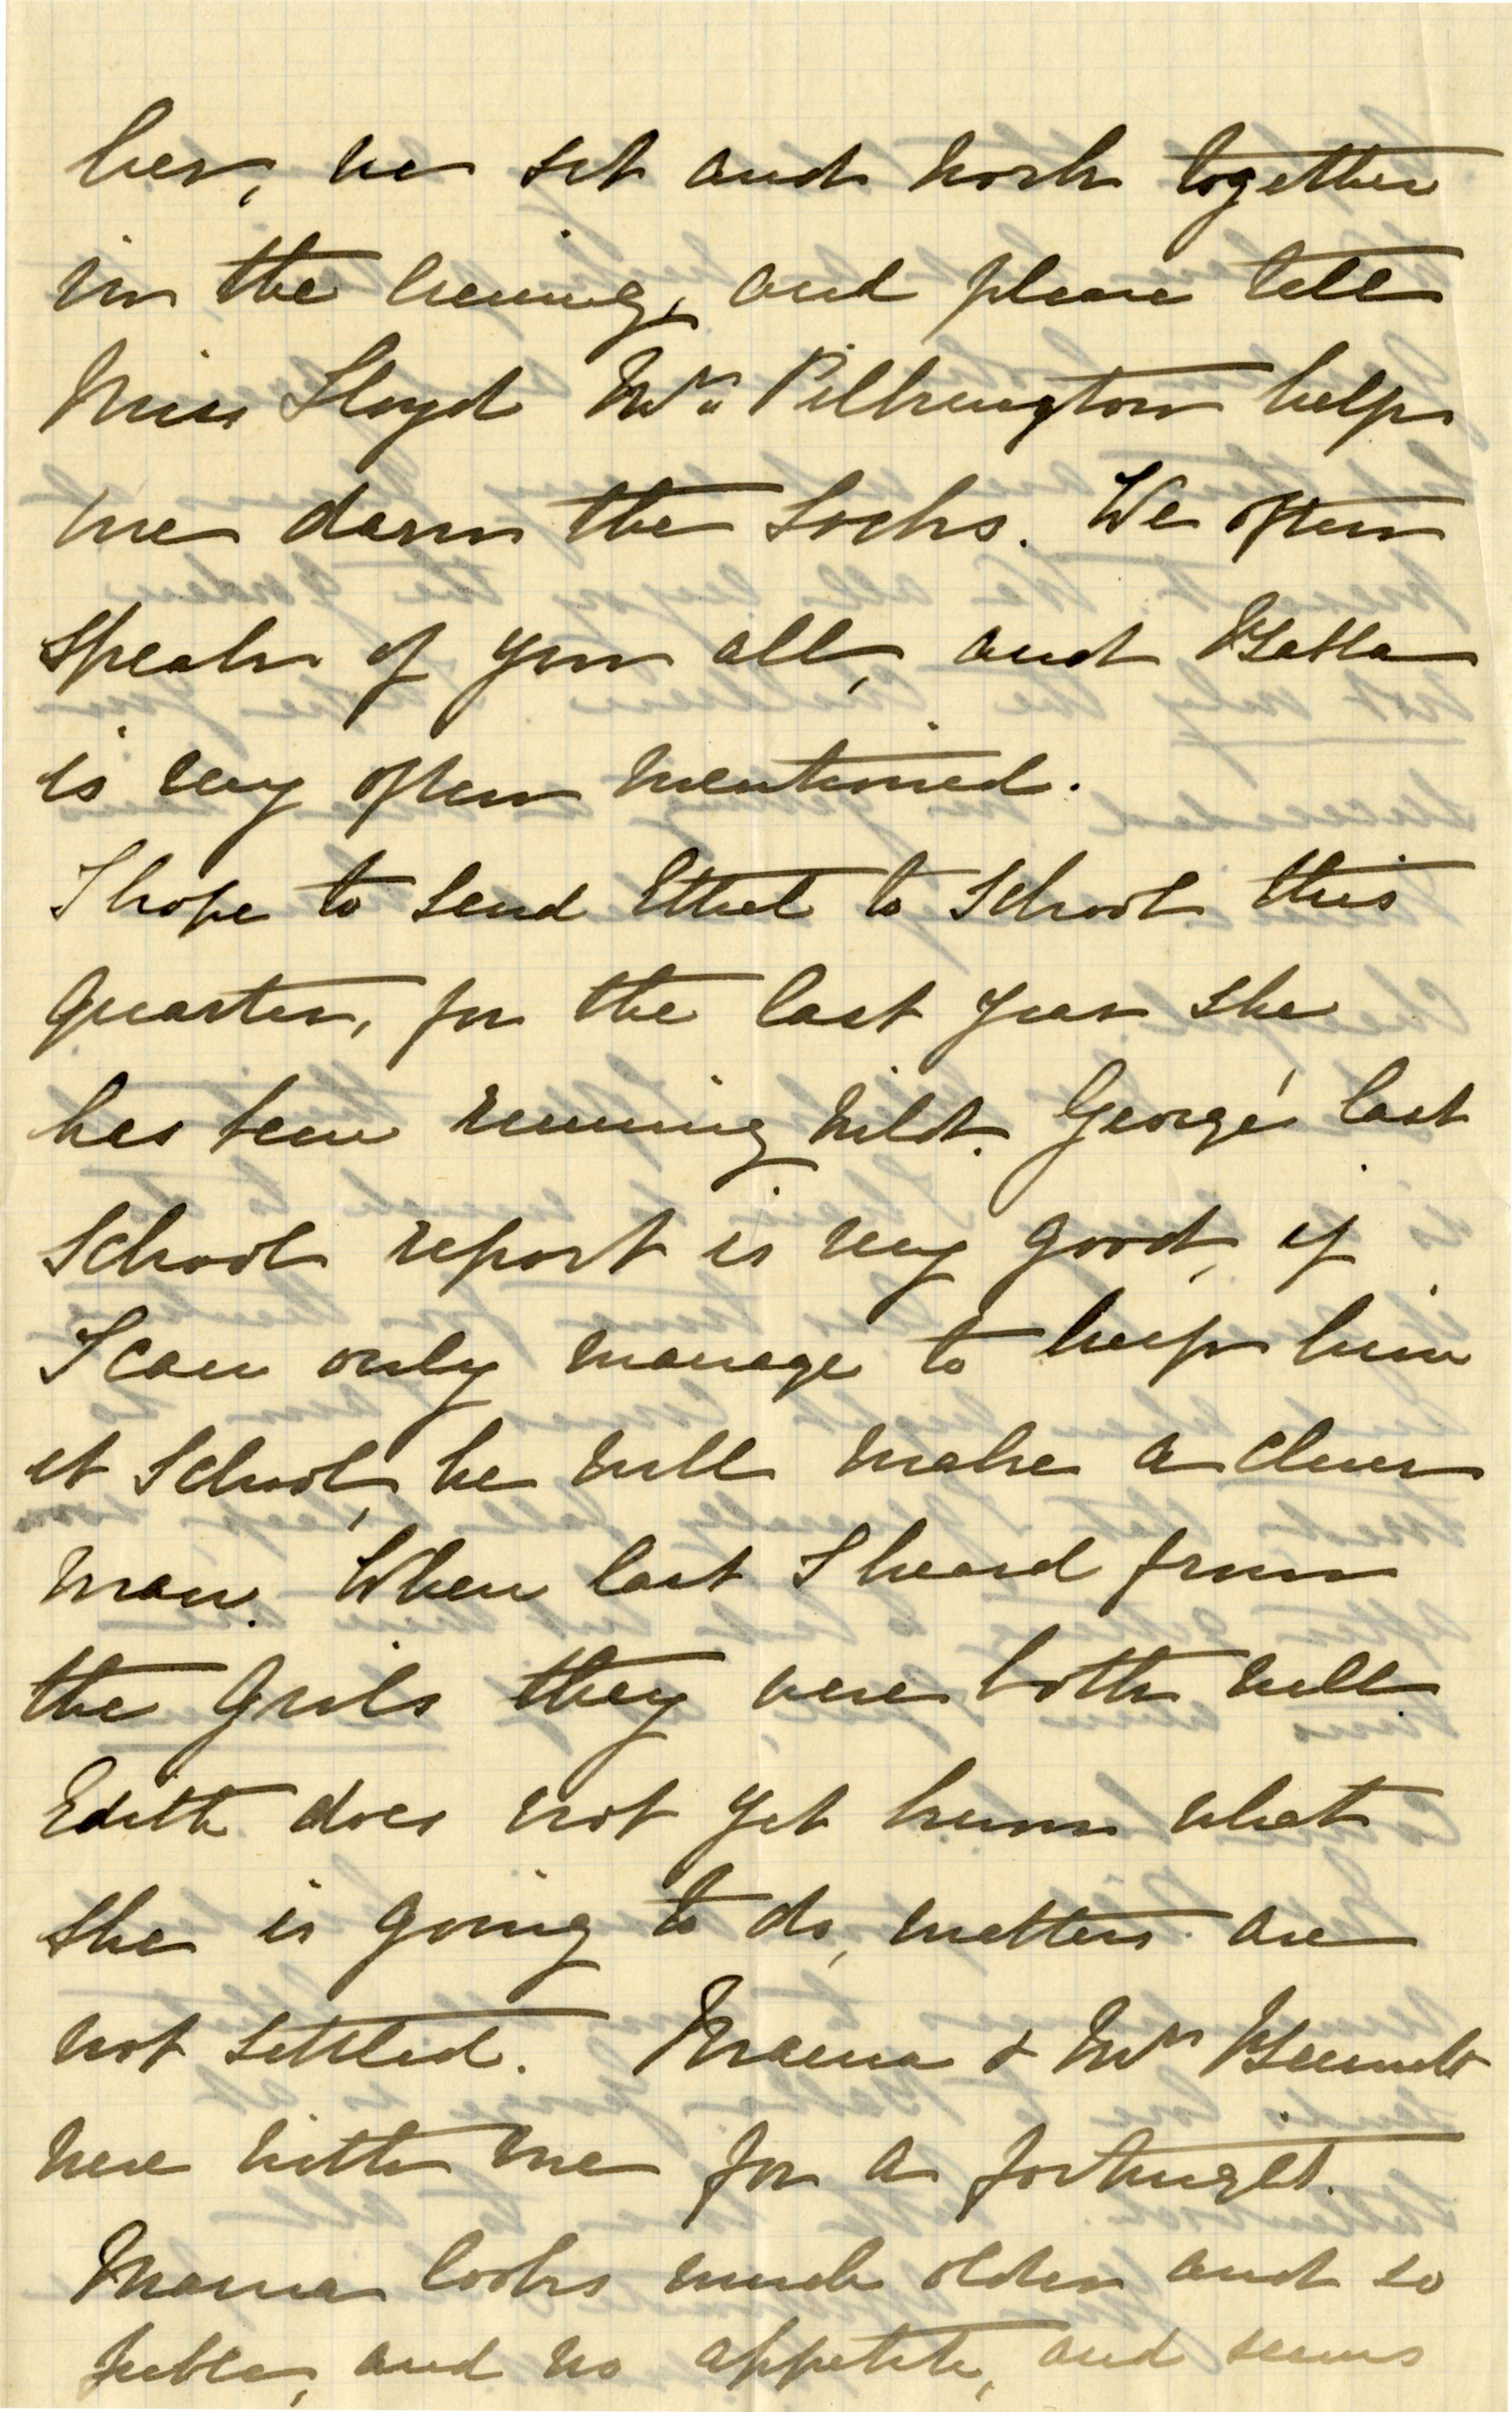 her, we sit and work together
in the evening, and please tell
Miss Lloyd Mrs Pilkington helps
me darn the socks. We often
speak of you all, and
is very often mentioned.
I hope to send Ethel to School this
quarter, for the last year she
has been running wild. George's last
School report is very good, if
I can only manage to keep him
at School, he will make a clever
man. When last I heard from
the Girls they were both well
Edith does not yet know what
she is going to do, matters are
not settled. Mama & Mrs
were with me for a fortnight.
Mama looks much older and so
feeble, and no appetite, and seems